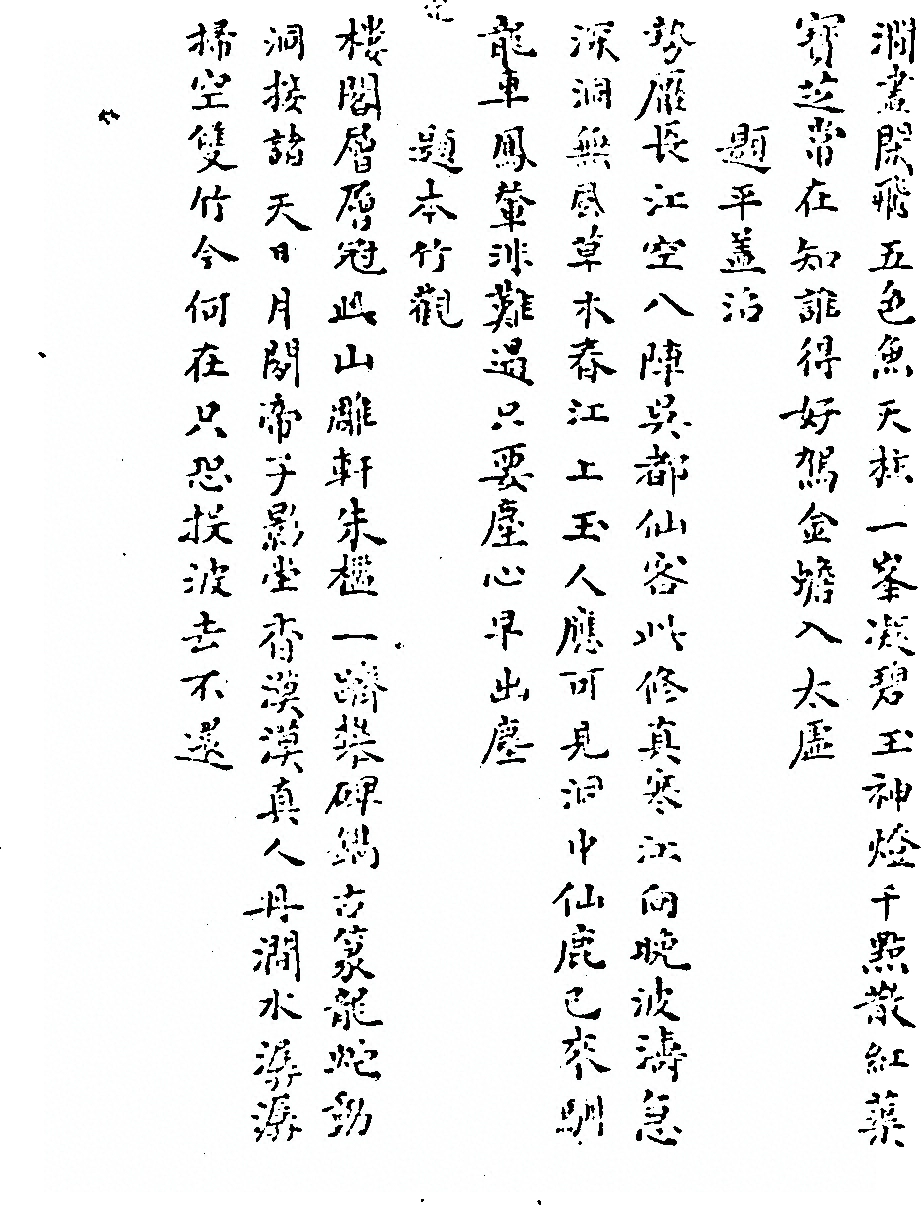 澗晝閑飛五色魚天柱一峯凝碧玉神燈千點散紅蕖
寶芝常在知誰得好駕金蟾入太虛
題平蓋沼
勢雁長江空八陣吳都仙客此修真寒江向晚波濤急
深洞無風草木春江上玉人應可見洞中仙鹿已來馴
龍車鳳輦非難遇只要塵心早出塵
題本竹觀
樓閣層層冠此山雕軒朱檻一躋攀碑鎸古篆龍蛇動
洞接諸天日月閑帝子影堂香漠漠真人丹澗水潺潺
掃空雙竹今何在只恐投波去不還